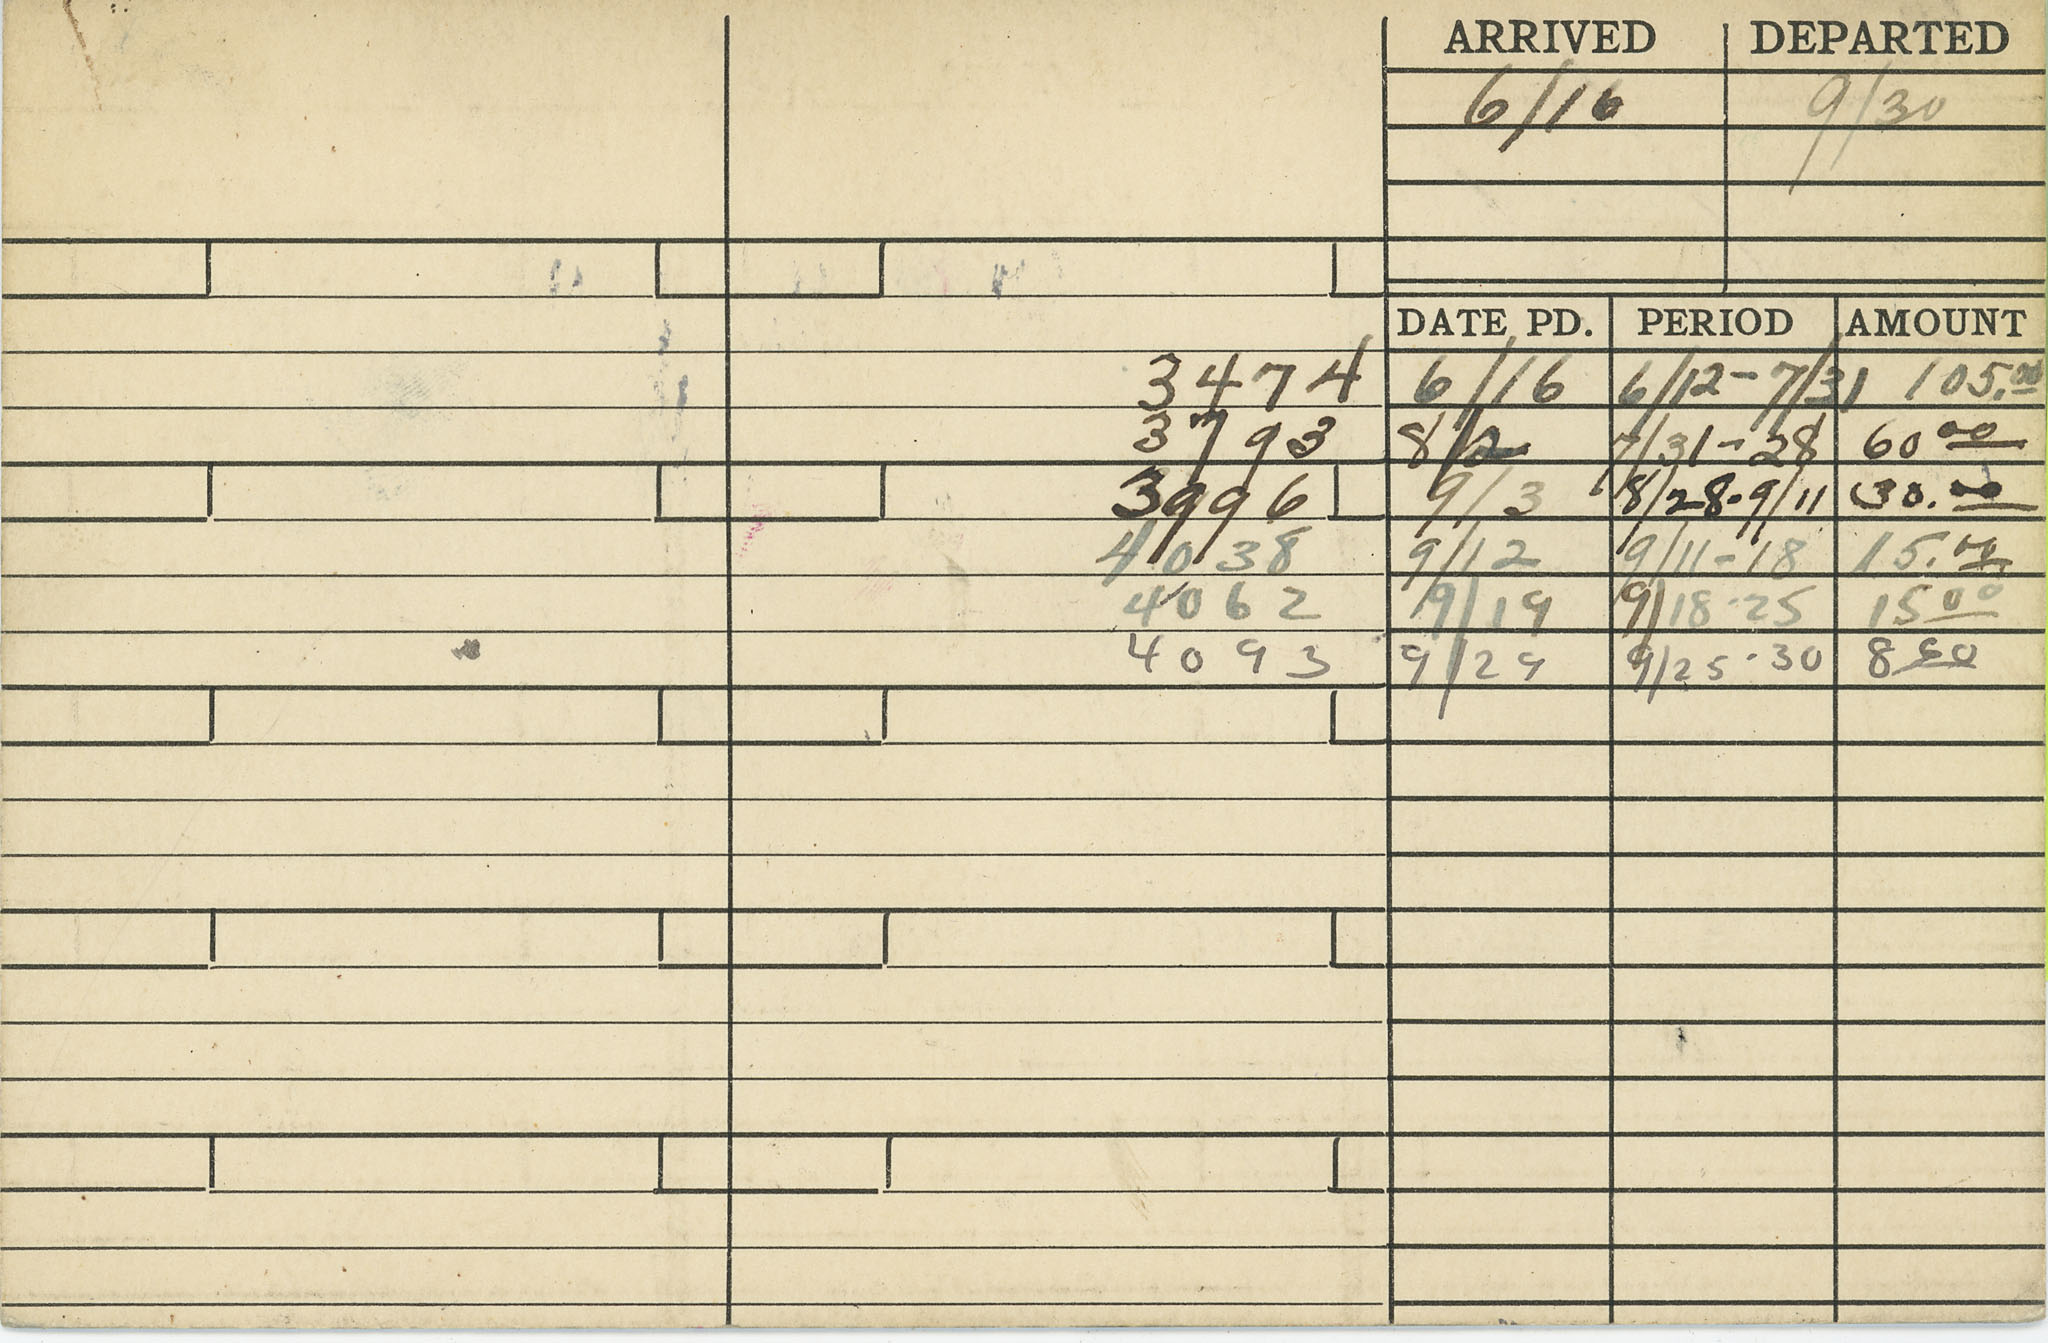 ARRIVED DEPARTED
6/16 9/30
DATE PD. PERIOD AMOUNT
3474 6/16 6/12-7/31 105.00
3793 8/2 7/31-28 60 00
3996 9/3 8/28-9/11 30.00
4038 9/12 9/11-18 15.00
4062 9/19 9/18-25 15 00
4093 9/29 9/25-30 8 60